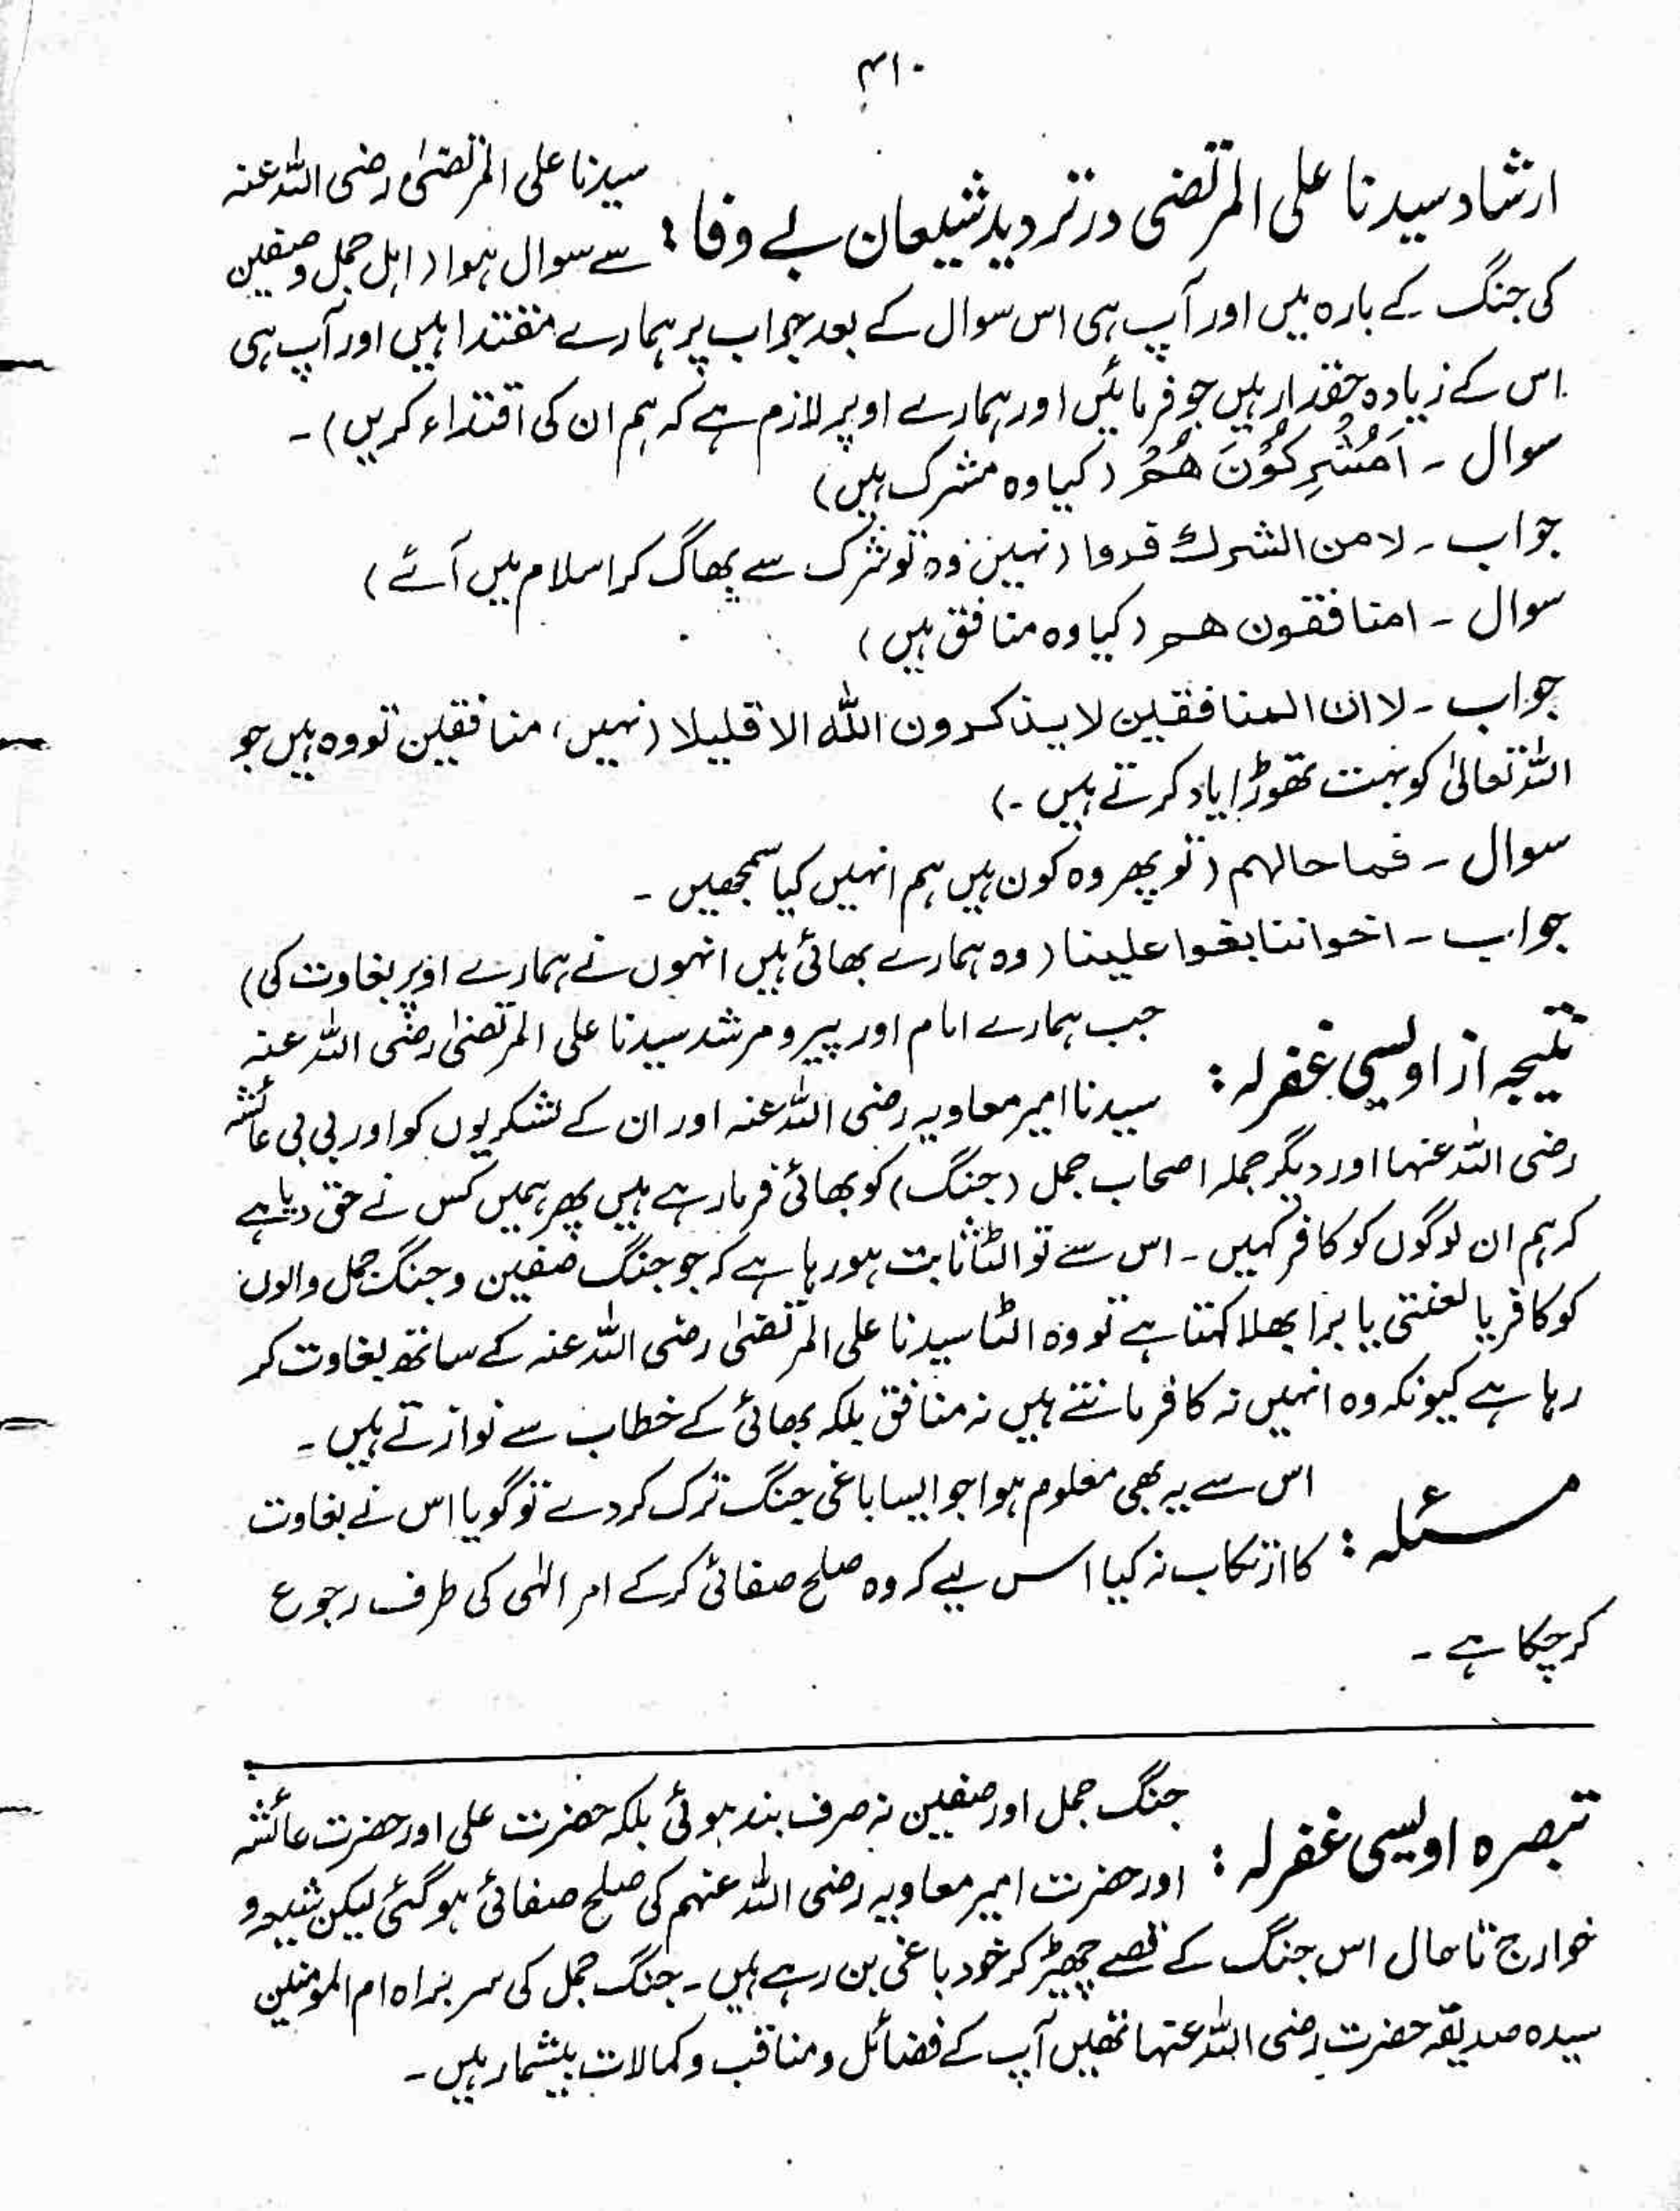 ۳۱۰
ارشاد سیدنا علی المرتضی در تردید شیعان بے وفا : سیدنا علی المرتضیٰ رضی اللہ عنہ
سے سوال ہوا ( اہل جمل و صفین
کی جنگ کے بارہ میں اور آپ ہی اس سوال کے بعد جواب پر ہمارے مقتدا ہیں اور آپ ہی
اس کے زیادہ حقدار ہیں جو فرمائیں اور ہمارے اوپر لازم ہے کہ ہم ان کی اقتداء کریں ) ۔
سوال ۔ اَمُشْرِكُوْنَ هُمْ ( کیا وہ مشرک ہیں )
جواب ۔ لا من الشرك فروا ( نہیں وہ تو شرک سے بھاگ کر اسلام میں آئے )
سوال ۔ امنافقون هم ( کیا وہ منافق ہیں )
جواب ۔ لا ان المنافقين لا يذكرون الله الا قليلا ( نہیں ، منافقین تو وہ ہیں جو
اللہ تعالیٰ کو بہت تھوڑا یاد کرتے ہیں ۔ )
سوال ۔ فما حالهم ( تو پھر وہ کون ہیں ہم انہیں کیا سمجھیں ۔
جواب ۔ اخواننا بغوا علينا ( وہ ہمارے بھائی ہیں انہوں نے ہمارے اوپر بغاوت کی )
نتیجہ از اویسی غفرلہ : جب ہمارے امام اور پیر و مرشد سیدنا علی المرتضیٰ رضی اللہ عنہ
سیدنا امیر معاویہ رضی اللہ عنہ اور ان کے لشکریوں کو اور بی بی عائشہ
رضی اللہ عنہا اور دیگر جملہ اصحاب جمل ( جنگ ) کو بھائی فرما رہے ہیں پھر ہمیں کس نے حق دیا ہے
کہ ہم ان لوگوں کو کافر کہیں ۔ اس سے تو الٹا ثابت ہو رہا ہے کہ جو جنگ صفین و جنگ جمل والوں
کو کافر یا لعنتی یا برا بھلا کہتا ہے تو وہ الٹا سیدنا علی المرتضیٰ رضی اللہ عنہ کے ساتھ بغاوت کر
رہا ہے کیونکہ وہ انہیں نہ کافر مانتے ہیں نہ منافق بلکہ بھائی کے خطاب سے نوازتے ہیں ۔
مسئلہ : اس سے یہ بھی معلوم ہوا جو ایسا باغی جنگ ترک کر دے تو گویا اس نے بغاوت
کا ارتکاب نہ کیا اس لیے کہ وہ صلح صفائی کر کے امر الٰہی کی طرف رجوع
کر چکا ہے ۔
تبصرہ اویسی غفرلہ : جنگ جمل اور صفین نہ صرف بند ہوئی بلکہ حضرت علی اور حضرت عائشہ
اور حضرت امیر معاویہ رضی اللہ عنہم کی صلح صفائی ہو گئی لیکن شیعہ و
خوارج تا حال اس جنگ کے قصے چھیڑ کر خود باغی بن رہے ہیں ۔ جنگ جمل کی سربراہ ام المومنین
سیدہ صدیقہ حضرت رضی اللہ عنہا تھیں آپ کے فضائل و مناقب و کمالات بیشمار ہیں ۔